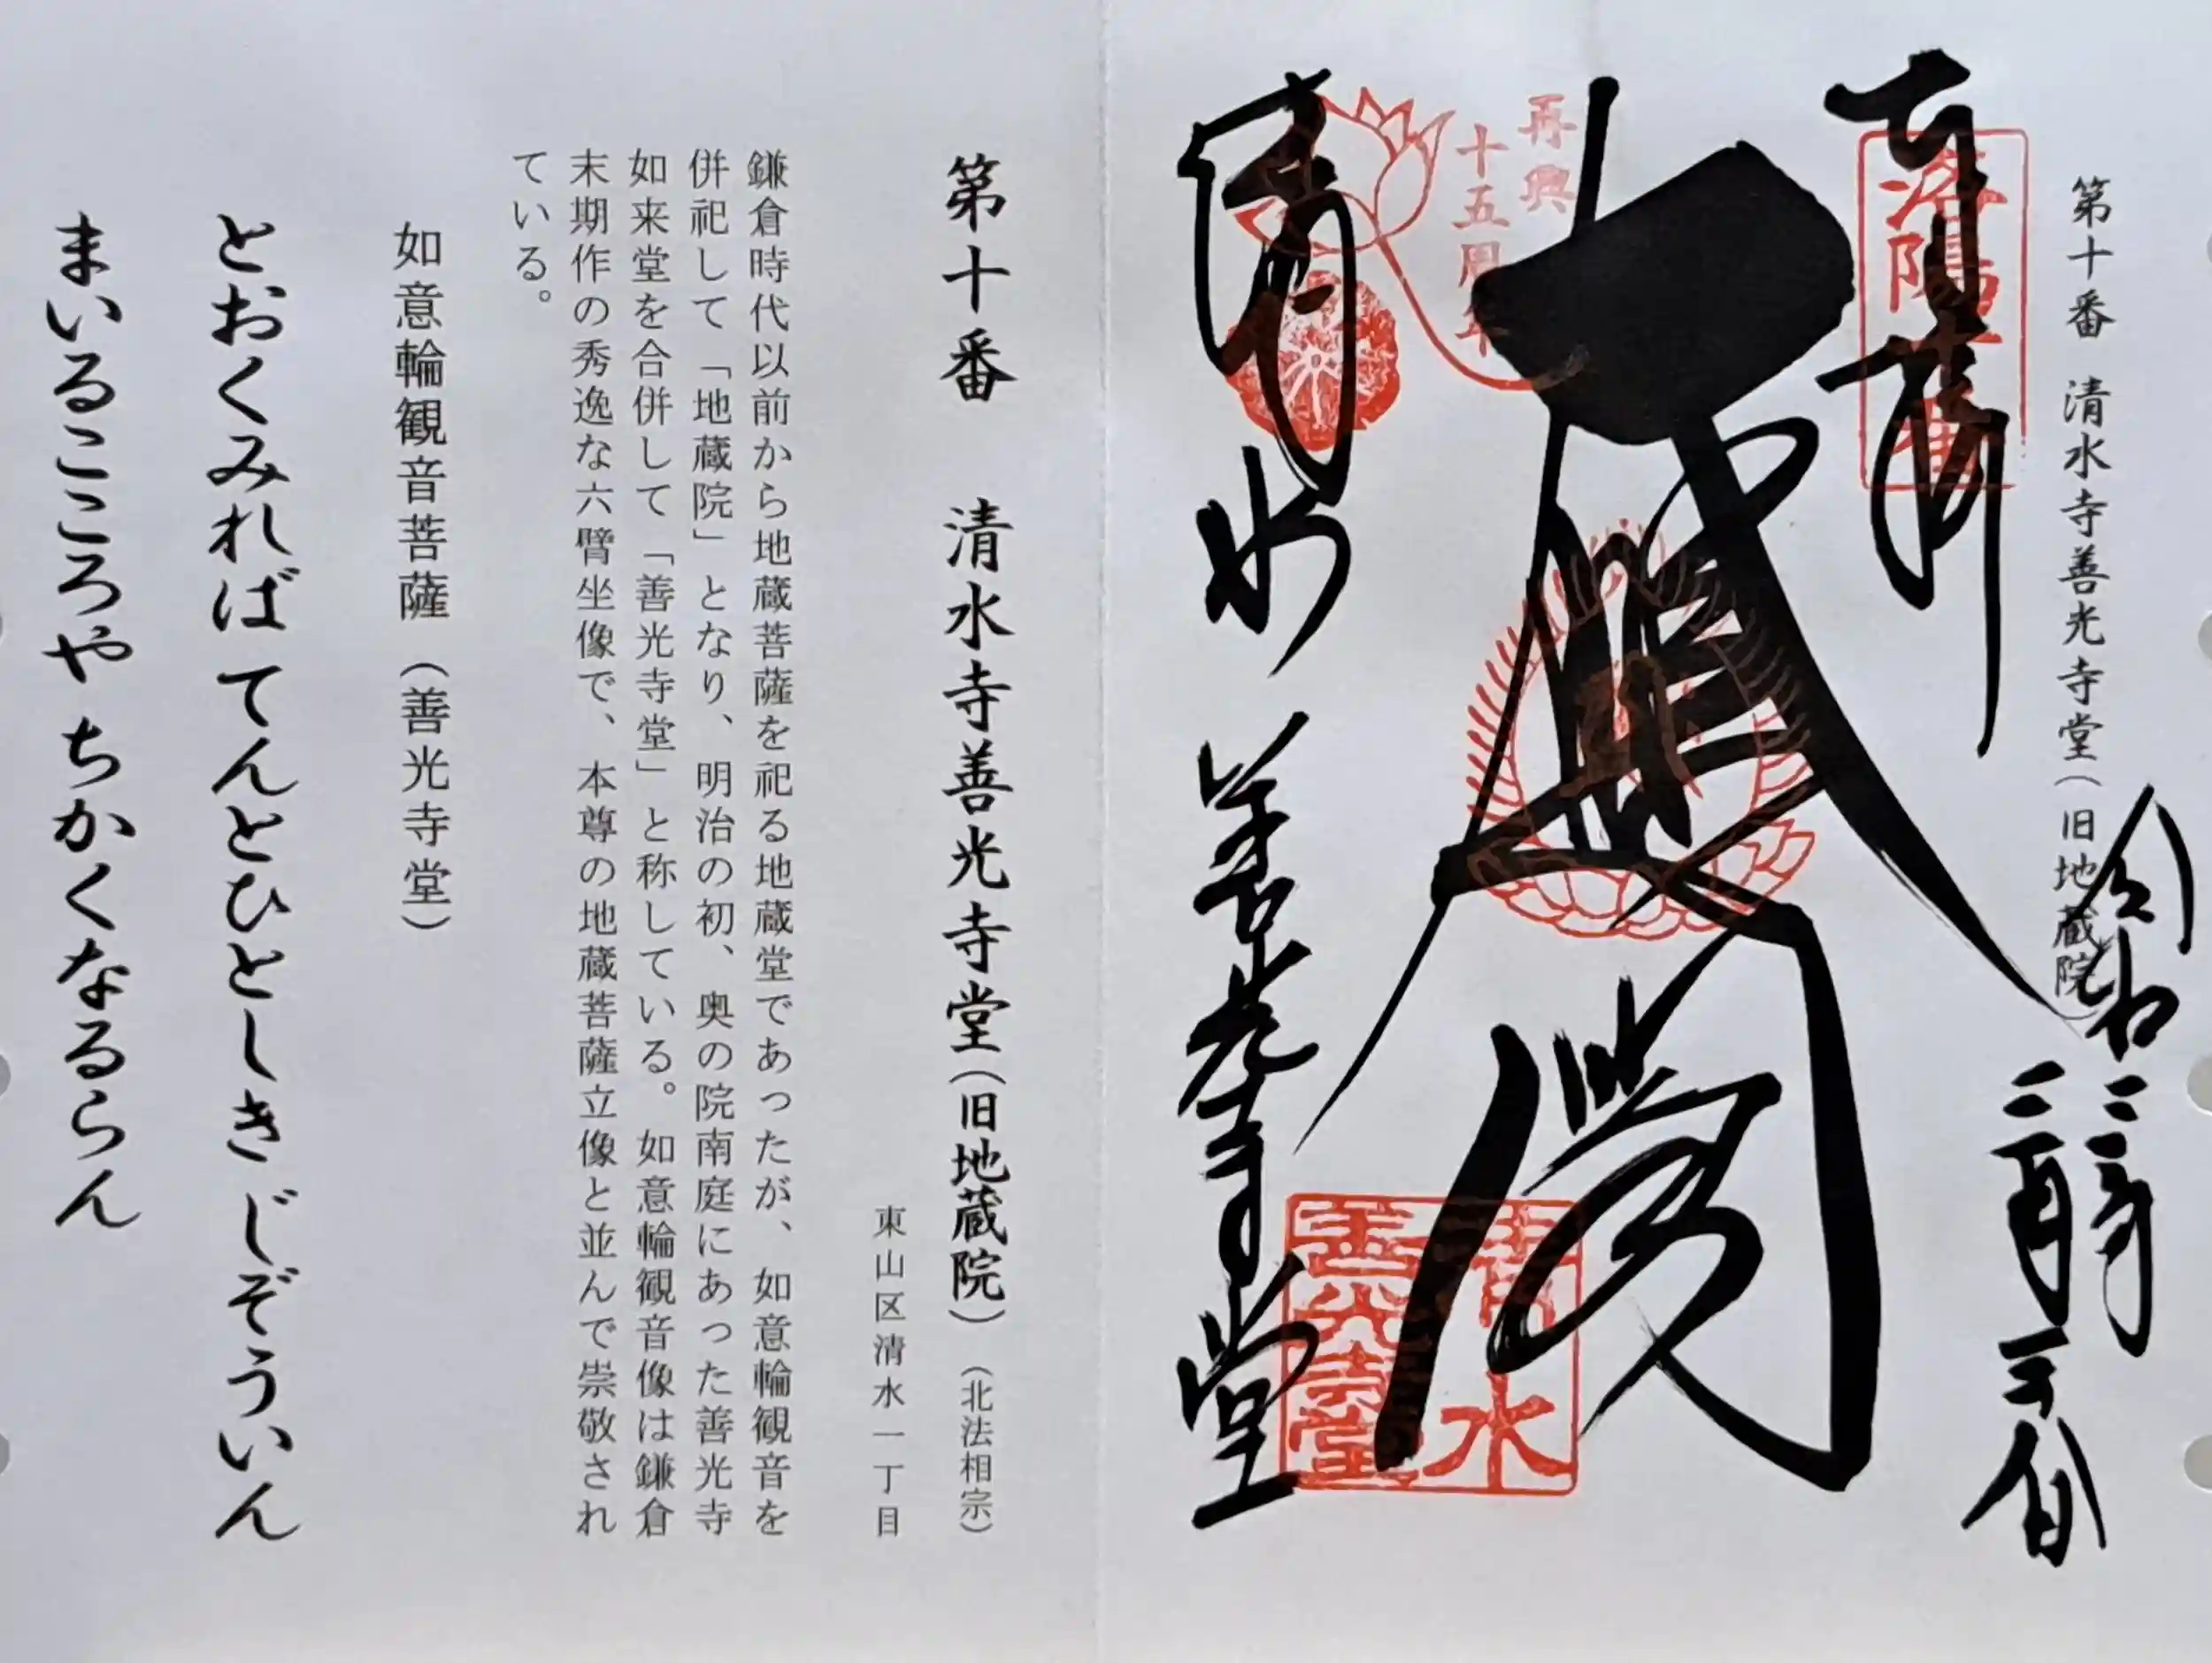 第十番 清水寺善光寺堂(旧地蔵院)
奉拝
洛陽十番
令和二年
二月二十三日
再興
十五周年
大悲閣
清水 善光寺堂
清水
善光寺堂
第十番 清水寺善光寺堂(旧地蔵院)(北法相宗)
東山区清水一丁目
鎌倉時代以前から地蔵菩薩を祀る地蔵堂であったが、如意輪観音を
併祀して「地蔵院」となり、明治の初、奥の院南庭にあった善光寺
如来堂を合併して「善光寺堂」と称している。如意輪観音像は鎌倉
末期作の秀逸な六臂坐像で、本尊の地蔵菩薩立像と並んで崇敬され
ている。
如意輪観音菩薩(善光寺堂)
とおくみれば てんとひとしき じぞういん
まいるこころや ちかくなるらん